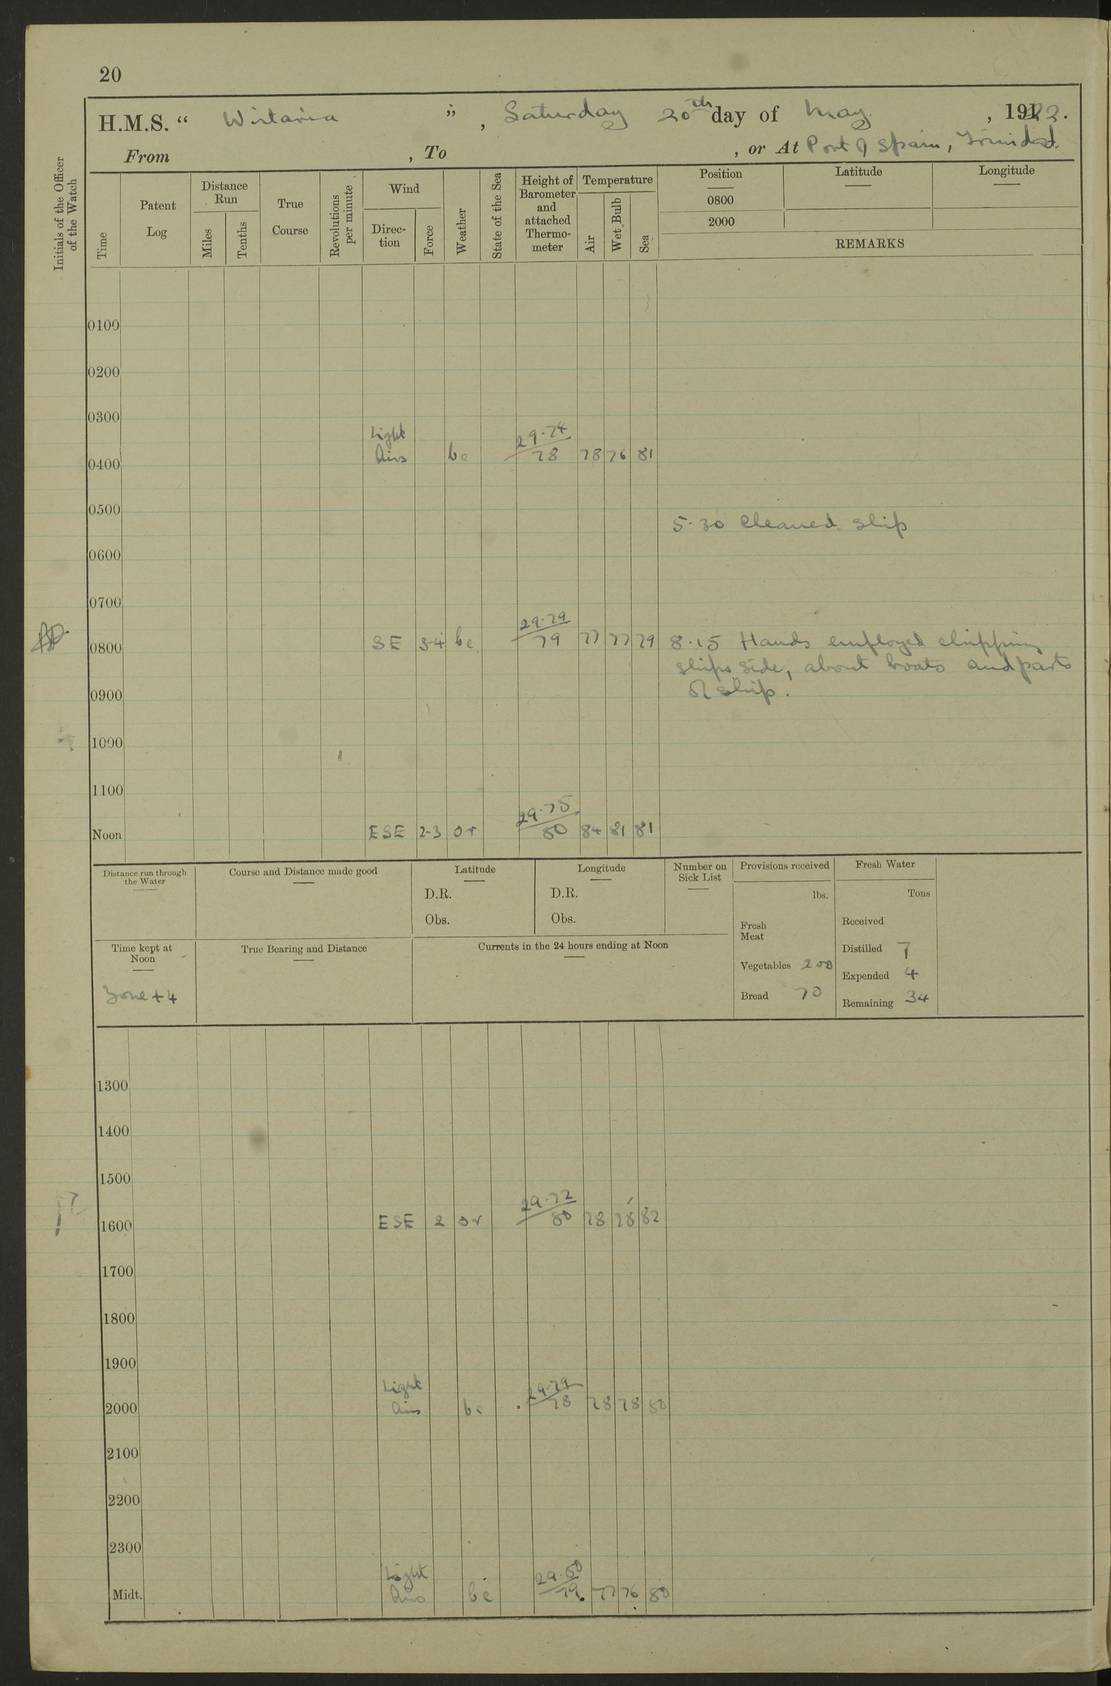 20
H.M.S. “ Wistaria ” , Saturday 20th day of May , 1922.
From , To , or At Port of Spain, Trinidad.
Initials of the Officer of the Watch
Time
Patent Log
Distance Run
Miles
Tenths
True Course
Revolutions per minute
Wind
Direc-tion
Force
Weather
State of the Sea
Height of Barometer and attached Thermo-meter
Temperature
Air
Wet Bulb
Sea
Position
Latitude
Longitude
0800
2000
REMARKS
0100
0200
0300
Light 29.74
0400 Airs bc 78 78 76 81
0500
5.30 Cleaned ship
0600
0700
29.79
0800 SE 3-4 bc 79 77 77 79 8.15 Hands employed chipping
ships side, about boats and parts
0900 of ship.
1000
1100
29.75
Noon ESE 2-3 or 80 84 81 81
Distance run through the Water
Course and Distance made good
Latitude
D.R.
Obs.
Longitude
D.R.
Obs.
Number on Sick List
Provisions received
lbs.
Fresh Meat
Vegetables 200
Bread 70
Fresh Water
Tons
Received
Distilled 7
Expended 4
Remaining 34
Time kept at Noon
Zone +4
True Bearing and Distance
Currents in the 24 hours ending at Noon
1300
1400
1500
29.72
1600 ESE 2 or 80 78 78 82
1700
1800
1900
Light 29.79
2000 airs bc 78 78 78 80
2100
2200
2300
Light 29.80
Midt. Airs bc 79 77 76 80